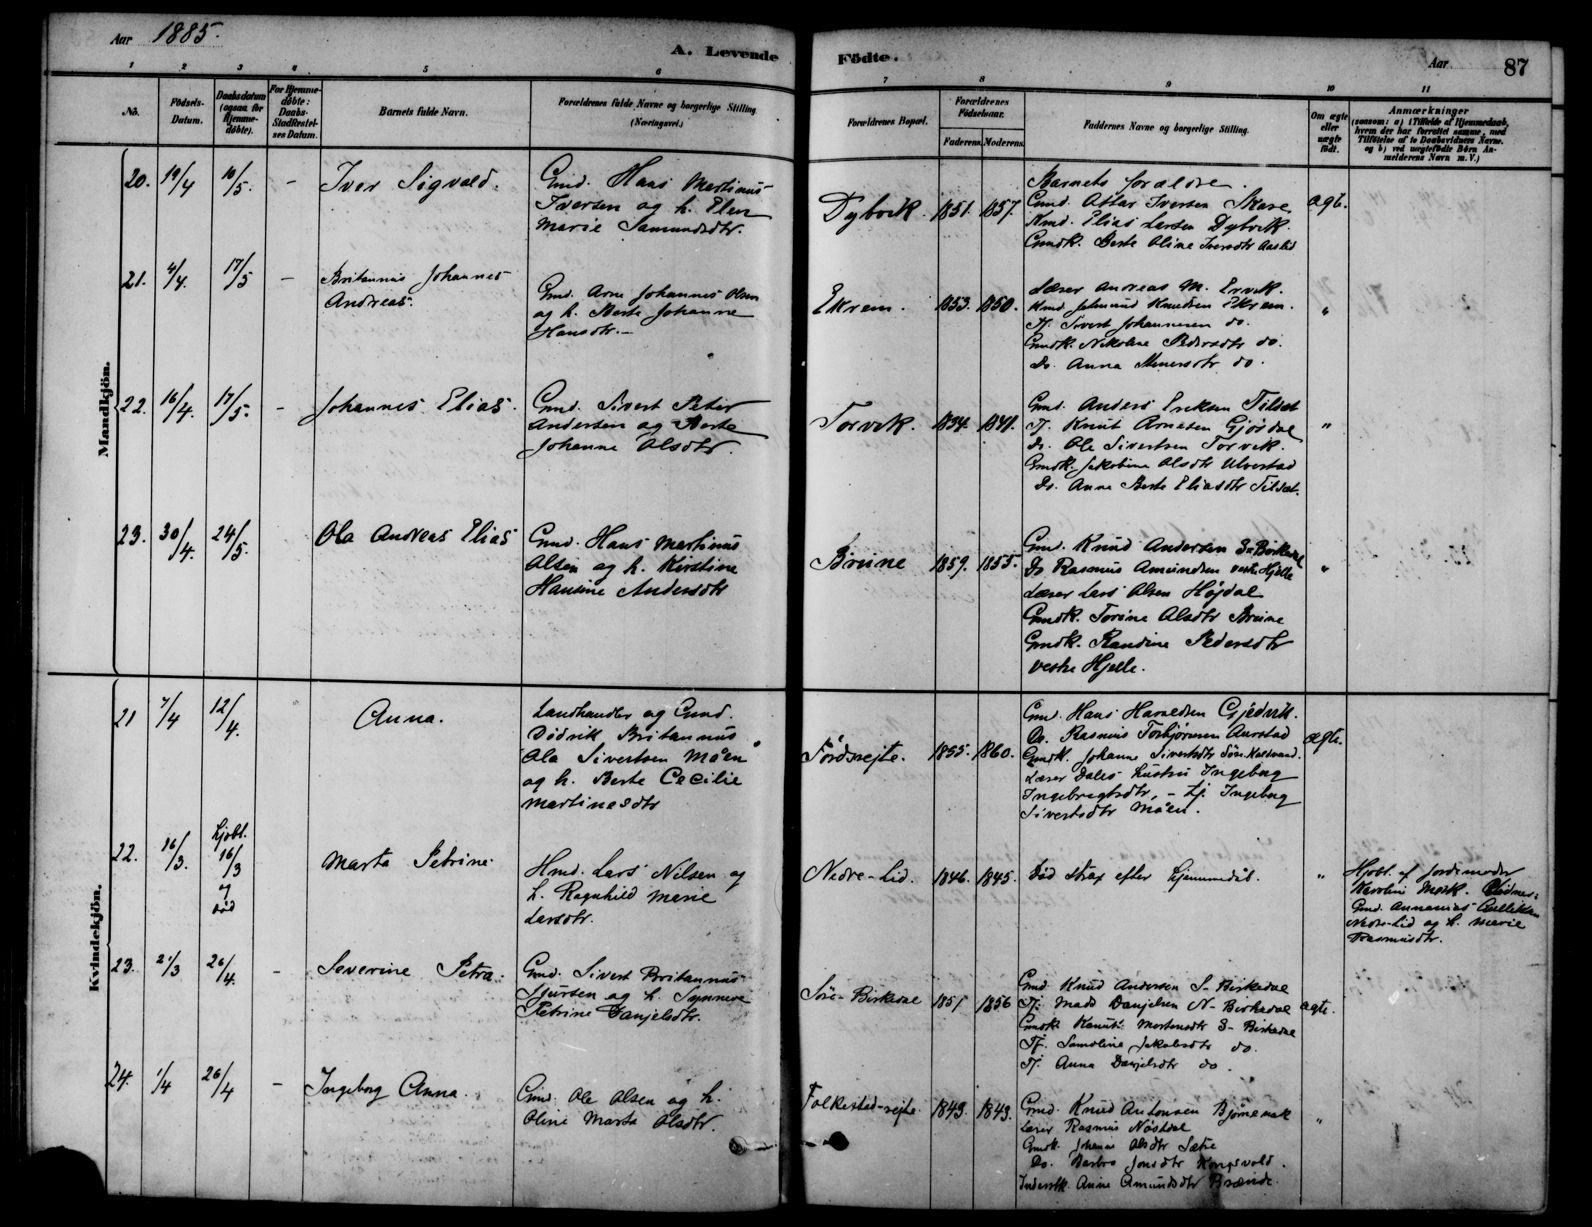 Aar 1885.
A. Levende Födte.
Aar 87
1 2 3 4 5 6 7 8 9 10 11
No.
Fødsels-Datum.
Daabsdatum (ogsaa for Hjemme-døbte).
For Hjemme-døbte: Daabs-Stadfæstel-ses Datum.
Barnets fulde Navn.
Forældrenes fulde Navne og borgerlige Stilling (Næringsvei.)
Forældrenes Bopæl.
Forældrenes Fødselsaar.
Faderens. Moderens.
Faddernes Navne og borgerlige Stilling.
Om ægte eller uægte født.
Anmærkninger
(saasom: a) i Tilfælde af Hjemmedaab,
hvem der har forrettet samme, med
Tilføielse af to Daabsvidners Navne,
og b) ved uægtefødte Børn An-
melderens Navn m. V.)
Mandkjön.
20. 19/4 10/5. – Iver Sigvald.
Gmd. Hans Martinus
Iversen og h. Elen
Marie Samundsdtr.
Dybvik. 1851. 1857.
Barnets forældre.
Gmd. Attar Iversen Skare
Kmd. Elias Larsen Dybvik.
Gmdk. Berte Oline Iversdtr Aaslid
ægt.
21. 4/4. 17/5 – Britannus Johannes
Andreas.
Gmd. Arne Johannes Olsen
og h. Berte Johanne
Hansdtr.–
Ekrem. 1853. 1850.
Lærer Andreas M. Ervik.
Kmd Knudsen Ekrem.
Tj. Sivert Johannesen do.
Gmdk. Nikoline Pedersdtr do.
Do. Anna do.
"
22. 16/4. 17/5. – Johannes Elias.
Gmd. Sivert Peter
Andersen og Berte
Johanne Olsdtr.
Torvik. 1834. 1841.
Gmd. Anders Eriksen Tilset
Tj. Knut Arnesen Gjøsdal
do. Ole Sivertsen Torvik.
Gmdk. Jakobine Olsdtr Ulvestad
Do. Anne Berte Eliasdtr Tilset.
"
23. 30/4. 24/5. Ola Andreas Elias
Gmd. Hans Martinus
Olsen og h. Kirstine
Hansine Andersdtr
Brune 1859. 1855.
Gmd. Knud Andersen S-Birkedal
Do Rasmus Amundsen vestre Hjelle
Lærer Lars Olsen Høydal
Gmdk. Torine Olsdtr Brune
Gmdk. Randine Pedersdtr
vestre Hjelle.
"
Kvindekjön.
21 7/4 12/4. Anna.
Landhandler og Gmd.
Didrik Britannus
Ola Sivertsen Möen
og h. Berte Cecilie
Martinesdtr
Fördsrejte. 1855. 1860.
Gmd. Hans Haraldsen Gjedvik.
Do. Rasmus Torbjörnsen Aarstad
Gmdk. Johanne Sivertsdtr
Lærer Dales hustru Ingeborg
Ingebregtsdtr, – Tj. Ingeborg
Sivertsdtr Möen.
ægte.
22. 16/3. hjdbt.
16/3
og
död
Marta Petrine.
Hmd. Lars Nilsen og
h. Ragnhild Marie
Larsdtr.
Nedre-Lid. 1846. 1845.
Död strax efter hjemmedåb.
"
Hjdbt. af Jordemoder
Karolin Mork. Vidner:
Gmd. Annanias
Nedre-Lid og h. Marie
Rasmusdtr.
23. 21/3 26/4. – Severine Petra.
Gmd. Sivert Britannus
Sjursen og h. Synneve
Petrine Danjelsdtr.
Søre-Birkedal 1851 1856
Gmd Knud Andersen S-Birkedal
Tj. Mads Danjelsen N-Birkedal
Gmdk. Mortensdtr S-Birkedal
Tj. Samoline Jakobsdtr do.
Tj. Anna Danjelsdtr do.
ægte.
24. 1/4 26/4 – Ingeborg Anna.
Gmd. Ole Olsen og h.
Oline Marta Olsdtr.
Folkestad-rejte 1843. 1843.
Gmd. Knud Antonsen Bjørneaak
Lærer Rasmus Nösdal
Gmdk. Johanne Olsdtr Sætre
Do. Barbro Jonsdtr Kongsvold.
Inderstk. Anne Amundsdtr Brænde.
"